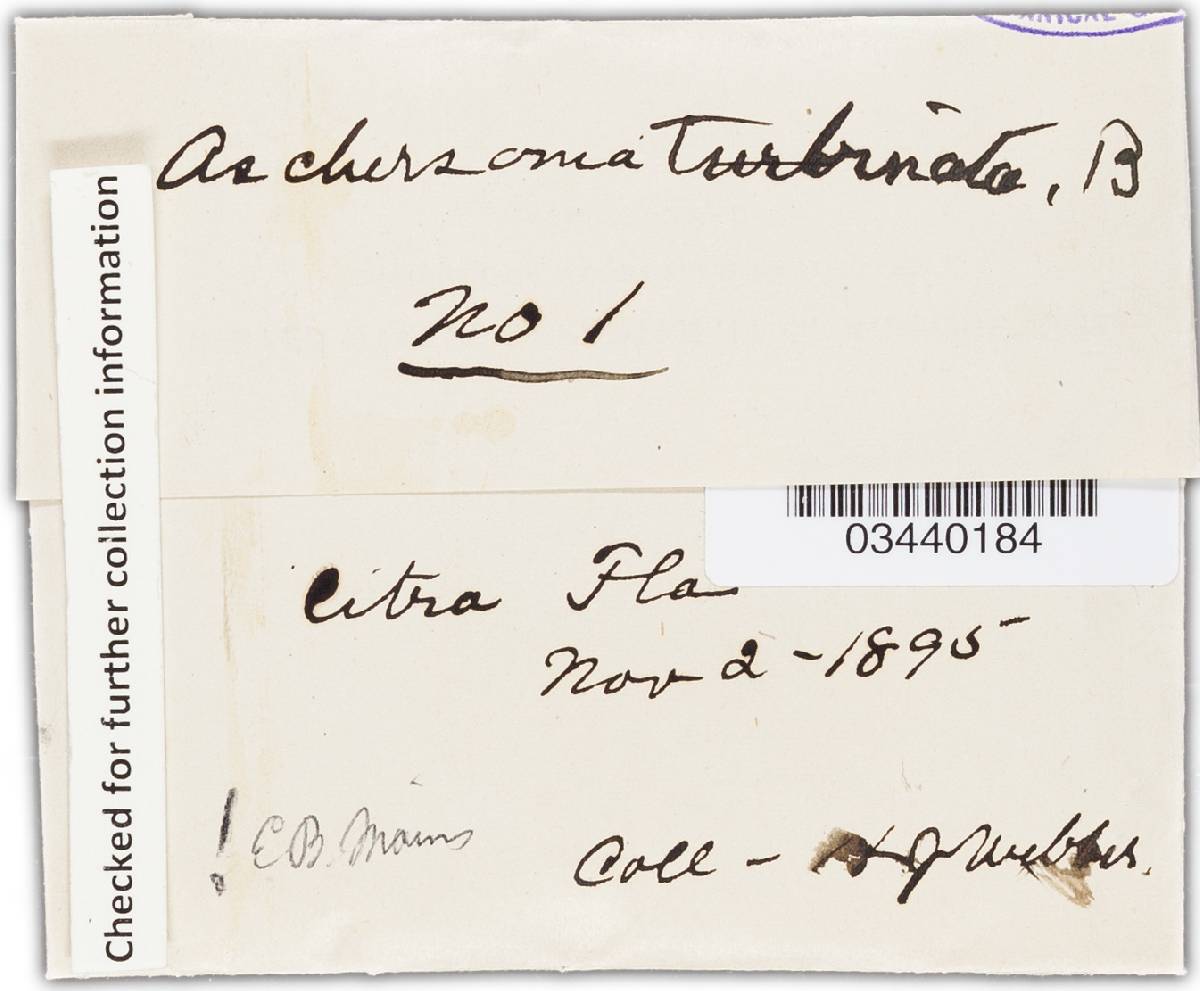 Aschersonia Turbinata, B
No 1
03440184
Citra Fla
Nov 2 - 1895
! E B. Mains
Coll - H J Webber.
Checked for further collection information